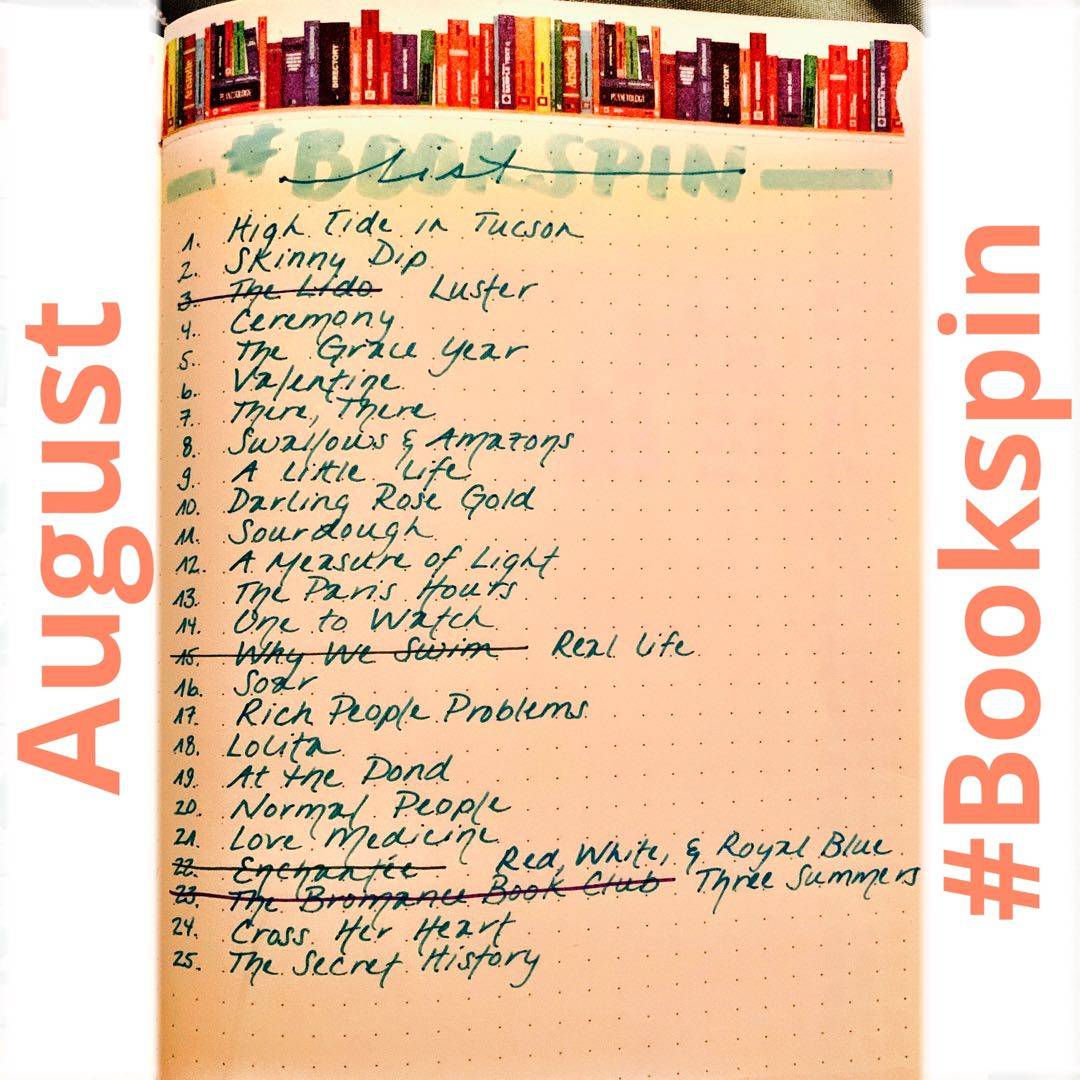 DIRECTORY
PLANETOLOGY
PLANETOLOGY
DIRECTORY
#BOOKSPIN
List
1. High Tide in Tucson
2. Skinny Dip
3. The Lido Luster
4. Ceremony
5. The Grace Year
6. Valentine
7. There, There
8. Swallows & Amazons
9. A Little Life
10. Darling Rose Gold
11. Sourdough
12. A Measure of Light
13. The Paris Hours
14. One to Watch
15. Why We Swim Real Life
16. Soar
17. Rich People Problems
18. Lolita
19. At the Pond
20. Normal People
21. Love Medicine
22. Enchantée Red, White, & Royal Blue
23. The Bromance Book Club Three Summers
24. Cross Her Heart
25. The Secret History
August
#Bookspin